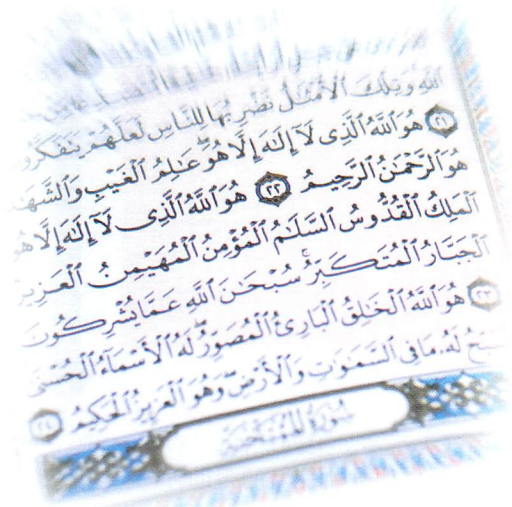 اللَّهِ وَتِلْكَ الْأَمْثَالُ نَضْرِبُهَا لِلنَّاسِ لَعَلَّهُمْ يَتَفَكَّرُو
٢١ هُوَ اللَّهُ الَّذِى لَآ إِلَٰهَ إِلَّا هُوَ ۖ عَٰلِمُ الْغَيْبِ وَالشَّهَٰ
هُوَ الرَّحْمَٰنُ الرَّحِيمُ ٢٢ هُوَ اللَّهُ الَّذِى لَآ إِلَٰهَ إِلَّا هُوَ
الْمَلِكُ الْقُدُّوسُ السَّلَٰمُ الْمُؤْمِنُ الْمُهَيْمِنُ الْعَزِيزُ
الْجَبَّارُ الْمُتَكَبِّرُ ۚ سُبْحَٰنَ اللَّهِ عَمَّا يُشْرِكُونَ
٢٣ هُوَ اللَّهُ الْخَٰلِقُ الْبَارِئُ الْمُصَوِّرُ ۖ لَهُ الْأَسْمَآءُ الْحُسْنَىٰ
يُسَبِّحُ لَهُۥ مَا فِى السَّمَٰوَٰتِ وَالْأَرْضِ ۖ وَهُوَ الْعَزِيزُ الْحَكِيمُ ٢٤
سُورَةُ الْمُمْتَحَنَةِ